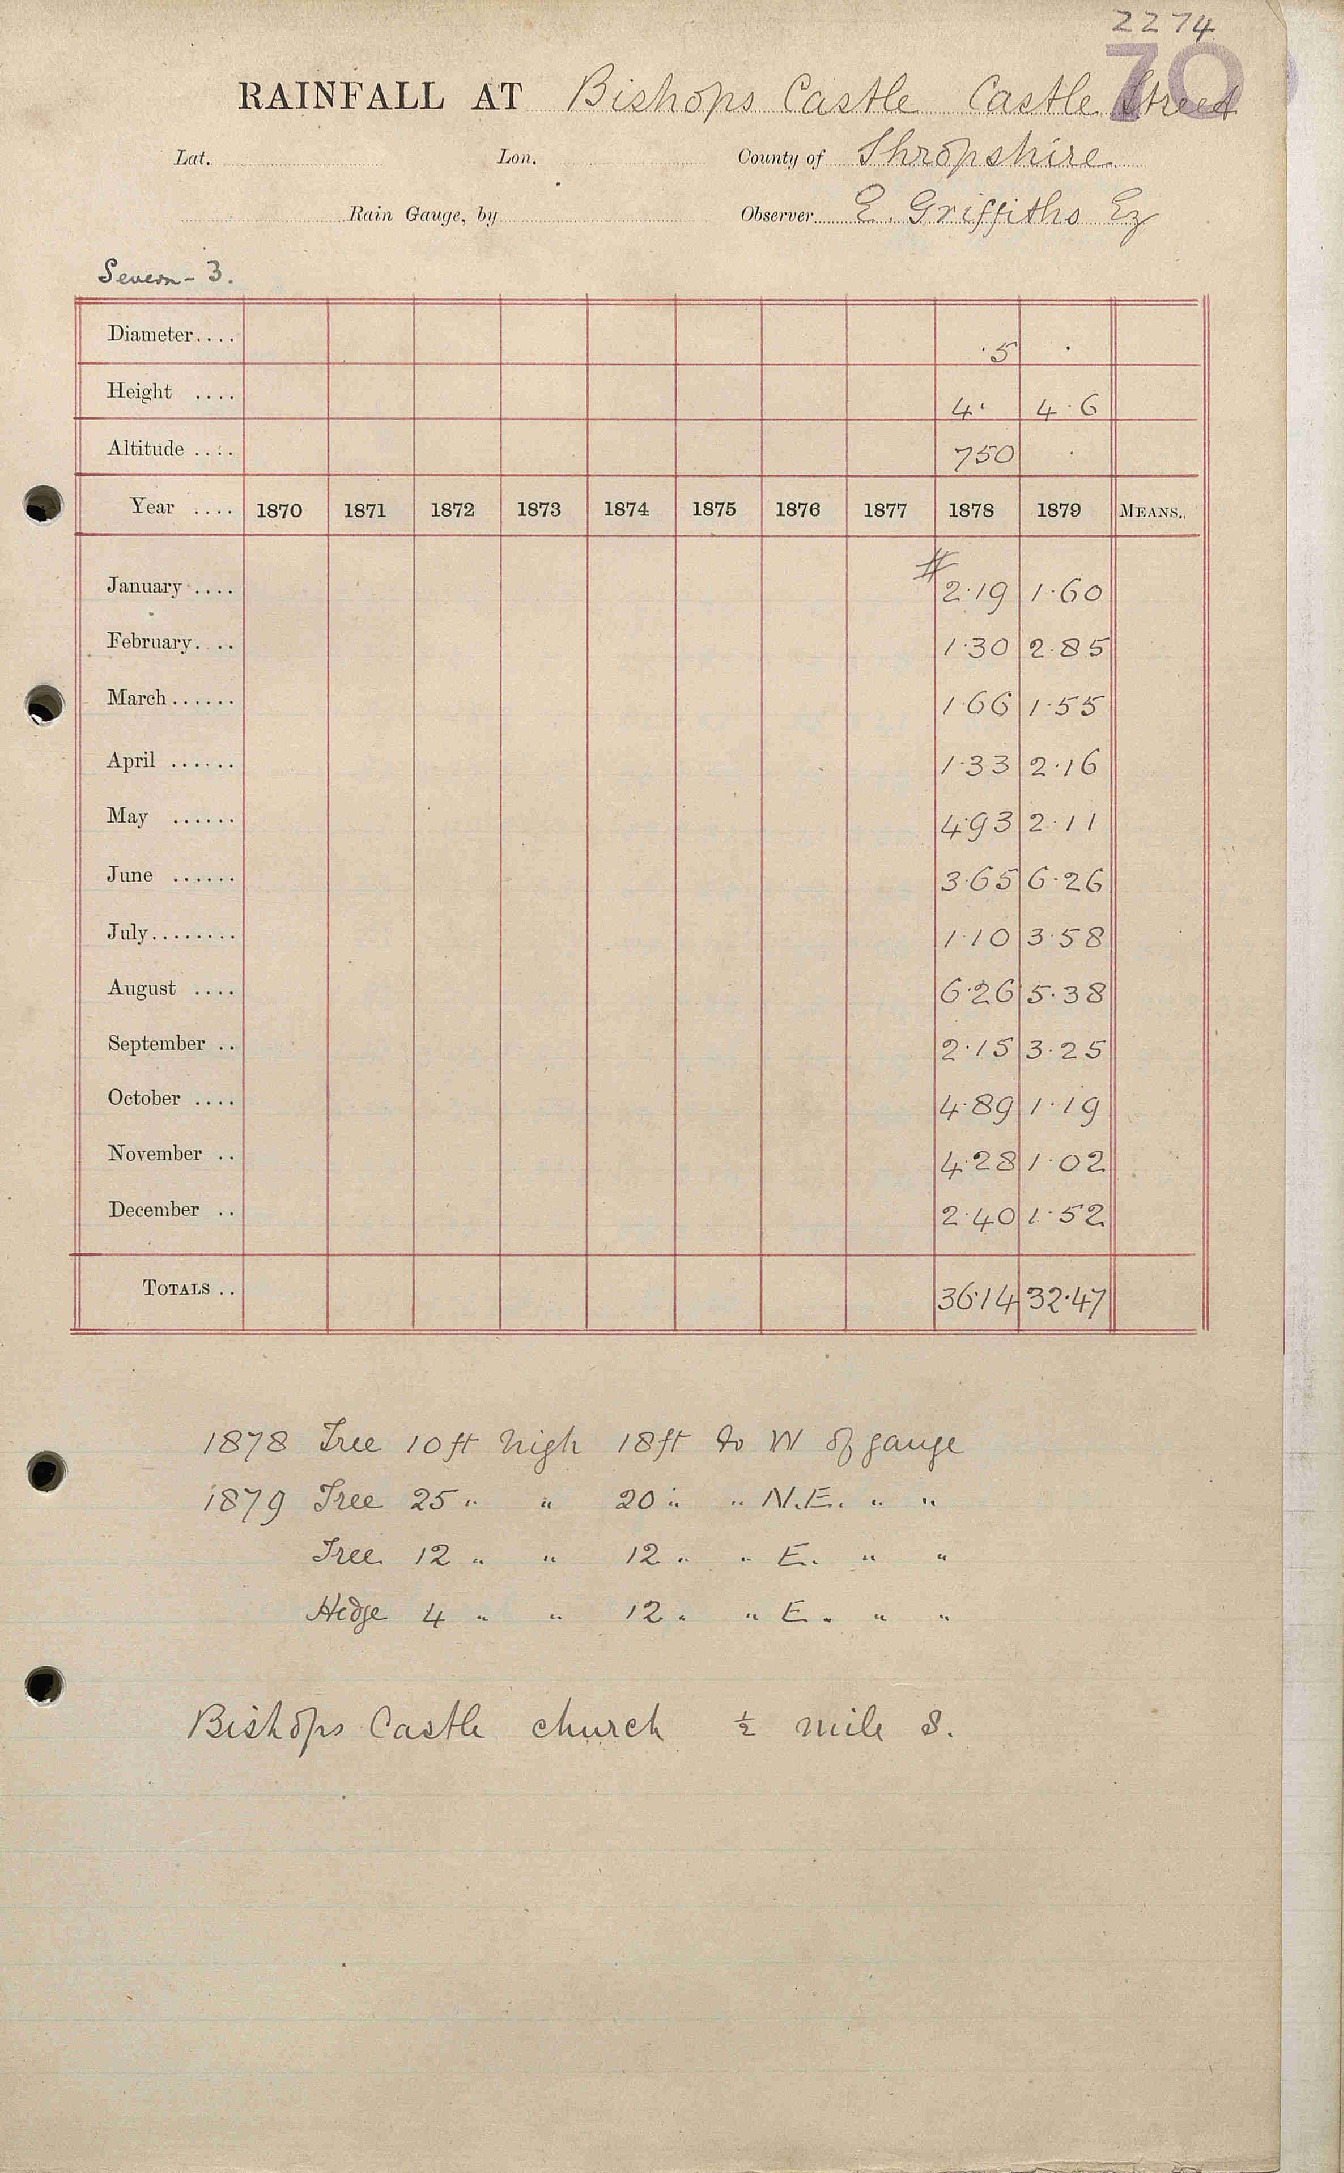 2274
70
RAINFALL AT Bishops Castle Castle Street
Lat. Lon. County of Shropshire.
Rain Gauge, by Observer E. Griffiths Ez
Severn - 3.
Diameter.... ·5 ·
Height .... 4· 4·6
Altitude .... 750 ·
Year .... 1870 1871 1872 1873 1874 1875 1876 1877 1878 1879 MEANS.
January .... # 2·19 1·60
February. .. 1·30 2·85
March...... 1·66 1·55
April ...... 1·33 2·16
May ...... 4·93 2·11
June ...... 3·65 6·26
July........ 1·10 3·58
August .... 6·26 5·38
September .. 2·15 3·25
October .... 4·89 1·19
November .. 4·28 1·02
December .. 2·40 1·52
TOTALS .. 36·14 32·47
1878 Tree 10 ft high 18 ft to W of gauge
1879 Tree 25 " " 20 " " N.E. " "
Tree 12 " " 12 " " E. " "
Hedge 4 " " 12 " " E. " "
Bishops Castle church ½ mile S.